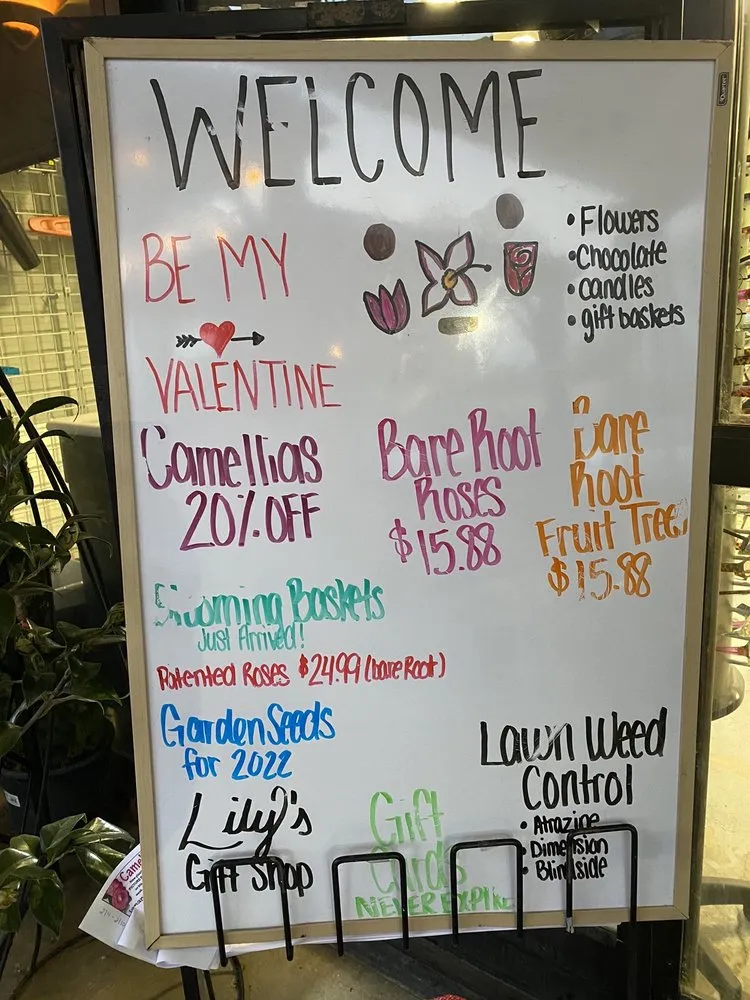 WELCOME
BE MY
VALENTINE
• Flowers
• Chocolate
• candles
• gift baskets
Camellias
20% OFF
Bare Root
Roses
$15.88
Bare
Root
Fruit Tree
$15.88
Blooming Baskets
Just Arrived!
Patented Roses $24.99 (bare Root)
Garden Seeds
for 2022
Lily's
Gift Shop
Gift
Cards
NEVER EXPIRE
Lawn Weed
Control
• Atrazine
• Dimension
• Blindside